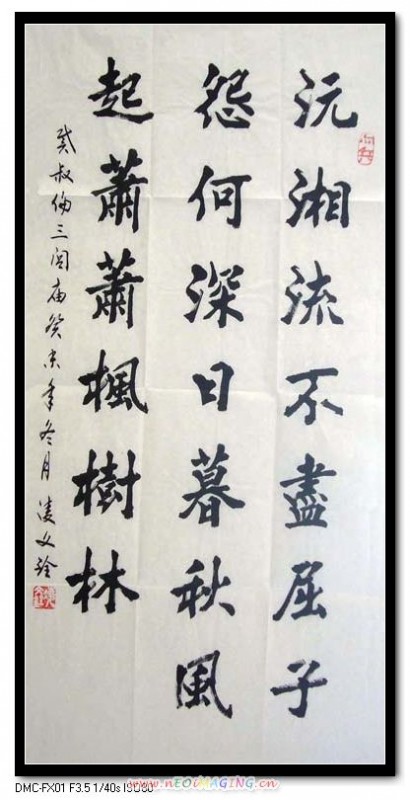 沅湘流不盡屈子
怨何深日暮秋風
起蕭蕭楓樹林
戴叔倫三闾庙癸未年冬月凌文詮
DMC-FX01 F3.5 1/40s ISO80
www.nEOIMAGING.cn